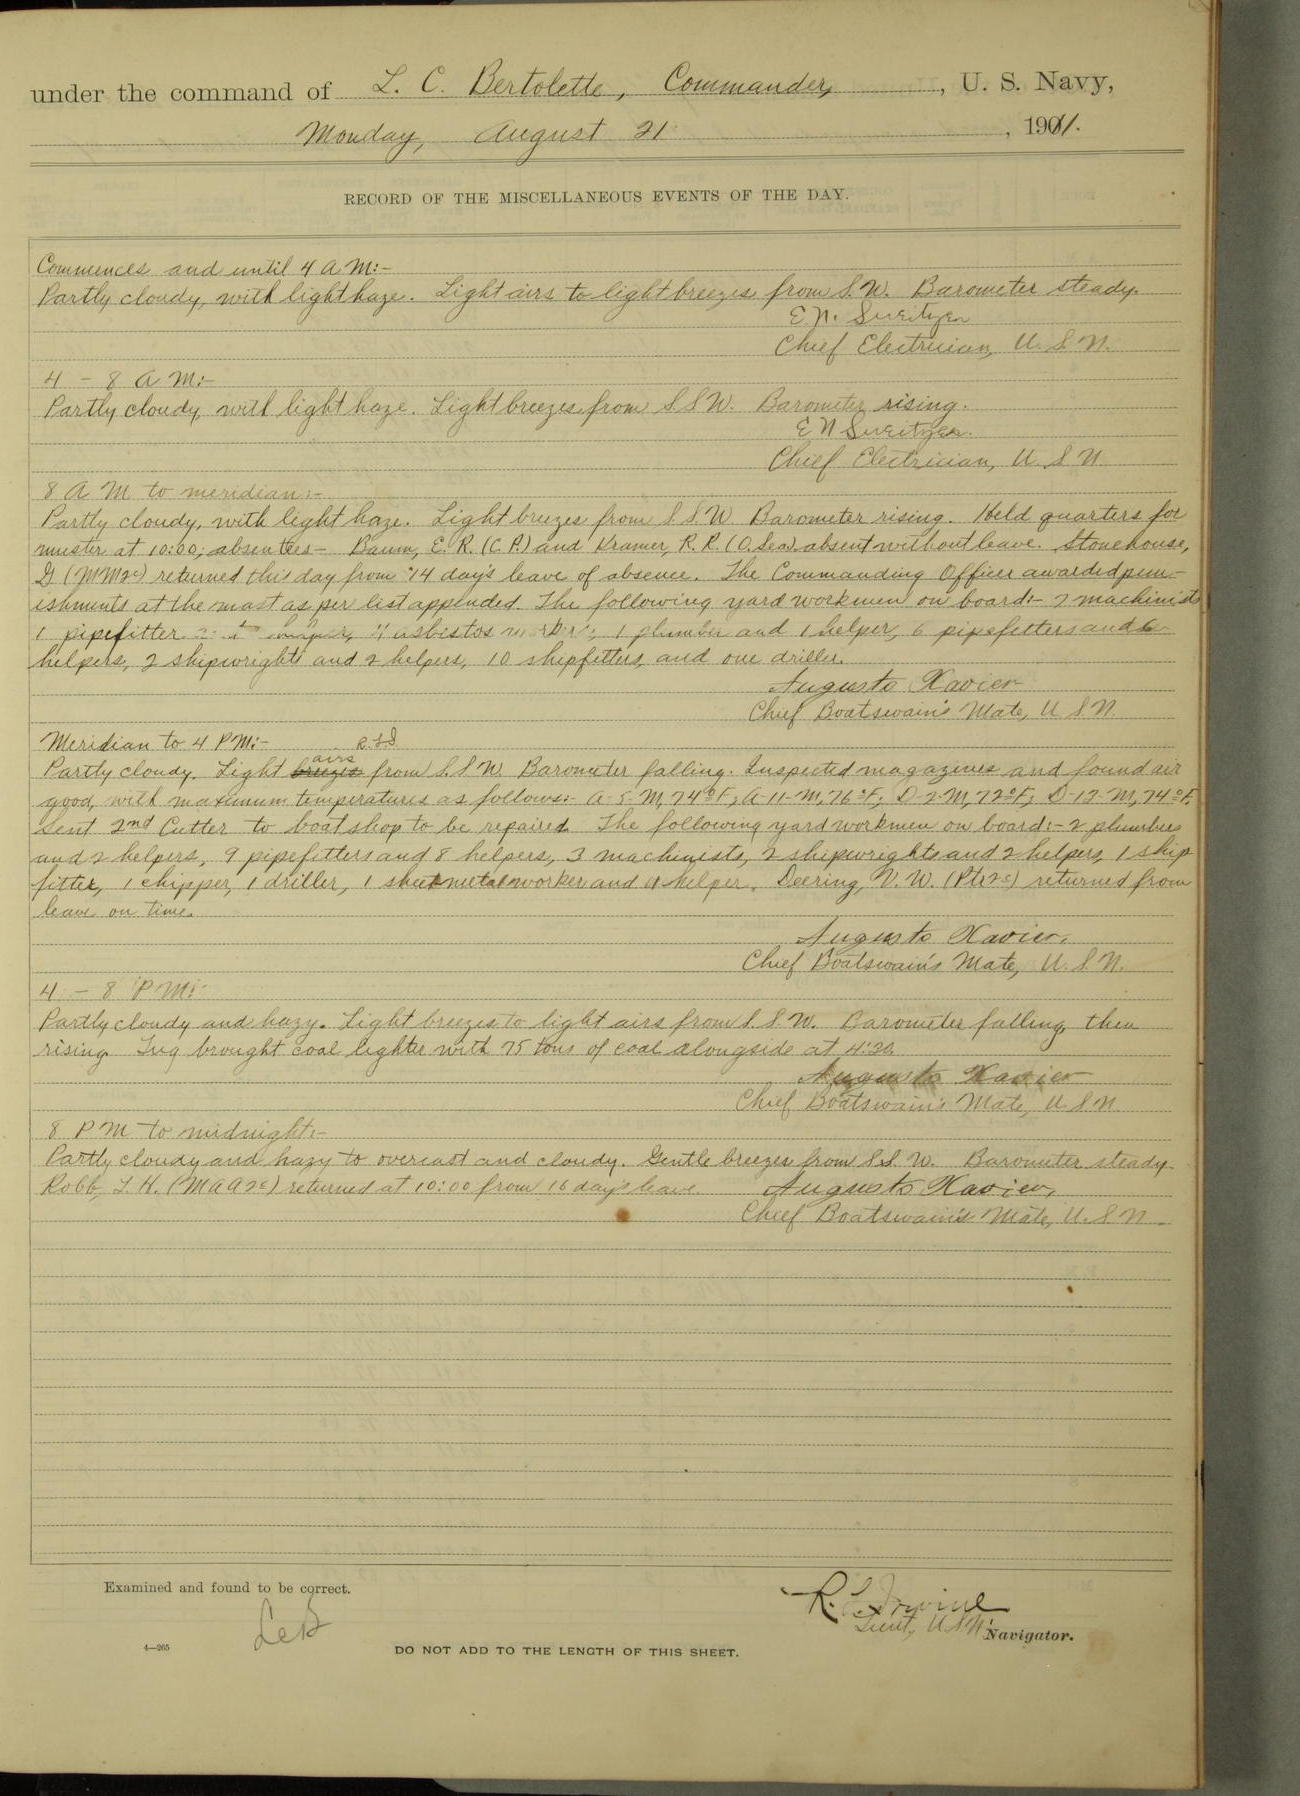 under the command of L. C. Bertolette, Commander, , U. S. Navy,
Monday, August 21 , 1911.
RECORD OF THE MISCELLANEOUS EVENTS OF THE DAY.
Commences and until 4 A M:-
Partly cloudy, with light haze. Light airs to light breezes from S.W. Barometer steady.
E N. Sweitzer
Chief Electrician, U. S. N.
4 - 8 A M:-
Partly cloudy, with light haze. Light breezes from S S W. Barometer rising.
E N Sweitzer.
Chief Electrician, U S N.
8 A M to meridian:-
Partly cloudy, with light haze. Light breezes from S.S.W Barometer rising. Held quarters for
muster at 10:00; absentees- Baum, E. R. (C.P.) and Kramer, R. R. (O.Sea). absent without leave. Stonehouse,
G (MM2c) returned this day from 14 day's leave of absence. The Commanding Officer awarded pun-
ishments at the mast as per list appended. The following yard workmen on board:- 2 machinists
1 pipefitter helper, 4 asbestos 1 plumber and 1 helper, 6 pipefitters and 6
helpers, 2 shipwrights and 2 helpers, 10 shipfitters, and one driller.
Augusto Xavier
Chief Boatswain's Mate, U S N.
Meridian to 4 P M:- R.L.I.
airs
Partly cloudy. Light breezes from S.S.W. Barometer falling. Inspected magazines and found air
good, with maximum temperatures as follows:- A-5-M, 74°F; A-11-M, 76°F; D-2-M, 72°F; D-13-M, 74°F.
Sent 2nd Cutter to boat shop to be repaired. The following yard workmen on board:- 2 plumbers
and 2 helpers, 9 pipefitters and 8 helpers, 3 machinists, 2 shipwrights and 2 helpers, 1 ship
fitter, 1 chipper, 1 driller, 1 sheetmetal worker and 1 helper. Deering, V. W. (Ptr2c) returned from
leave on time.
Augusto Xavier.
Chief Boatswain's Mate, U. S. N.
4 - 8 P M:-
Partly cloudy and hazy. Light breezes to light airs from S.S.W. Barometer falling, then
rising. Tug brought coal lighter with 75 tons of coal alongside at 4:20.
Augusto Xavier
Chief Boatswain's Mate, U S N
8 P M to midnight:-
Partly cloudy and hazy to overcast and cloudy. Gentle breezes from S.S.W. Barometer steady.
Robb, L. H. (MAA2c) returned at 10:00 from 16 day's leave. Augusto Xavier,
Chief Boatswain's Mate, U. S N.
Examined and found to be correct.
LCB
R. L. Irvine
Lieut, U.S.N. Navigator.
4—265
DO NOT ADD TO THE LENGTH OF THIS SHEET.